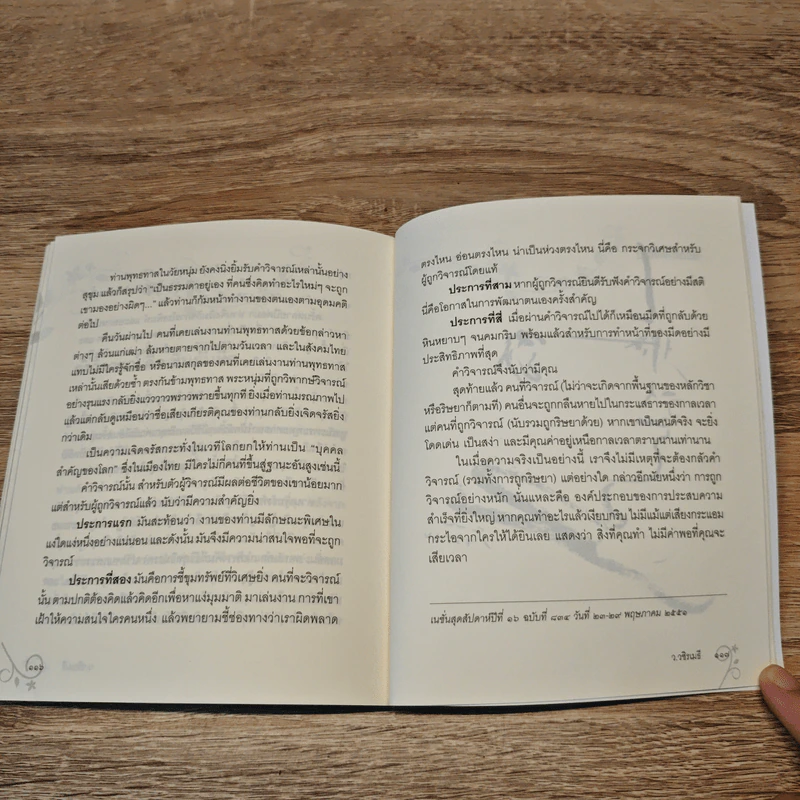 ท่านพุทธทาสในวัยหนุ่ม ยังคงนิ่งยิ้มรับคำวิจารณ์เหล่านั้นอย่าง
สุขุม แล้วก็สรุปว่า “เป็นธรรมดาอยู่เอง ที่คนซึ่งคิดทำอะไรใหม่ๆ จะถูก
เขามองอย่างผิดๆ...” แล้วท่านก็ก้มหน้าทำงานของตนเองตามอุดมคติ
ต่อไป
คืนวันผ่านไป คนที่เคยเล่นงานท่านพุทธทาสด้วยข้อกล่าวหา
ต่างๆ ล้วนแก่เฒ่า ล้มหายตายจากไปตามวันเวลา และในสังคมไทย
แทบไม่มีใครรู้จักชื่อ หรือนามสกุลของคนที่เคยเล่นงานท่านพุทธทาส
เหล่านั้นเสียด้วยซ้ำ ตรงกันข้ามพุทธทาส พระหนุ่มที่ถูกวิพากษ์วิจารณ์
อย่างรุนแรง กลับยิ่งแวววาวพราวพรายขึ้นทุกที ยิ่งเมื่อท่านมรณภาพไป
แล้วแต่กลับดูเหมือนว่าชื่อเสียงเกียรติคุณของท่านกลับยิ่งเจิดจรัสยิ่ง
กว่าเดิม
เป็นความเจิดจรัสกระทั่งในเวทีโลกยกให้ท่านเป็น “บุคคล
สำคัญของโลก” ซึ่งในเมืองไทย มีใครไม่กี่คนที่ขึ้นสู่ฐานะอันสูงเช่นนี้
คำวิจารณ์นั้น สำหรับตัวผู้วิจารณ์มีผลต่อชีวิตของเขาน้อยมาก
แต่สำหรับผู้ถูกวิจารณ์แล้ว นับว่ามีความสำคัญยิ่ง
ประการแรก มันสะท้อนว่า งานของท่านมีลักษณะพิเศษใน
แง่ใดแง่หนึ่งอย่างแน่นอน และดังนั้น มันจึงมีความน่าสนใจพอที่จะถูก
วิจารณ์
ประการที่สอง มันคือการชี้ขุมทรัพย์ที่วิเศษยิ่ง คนที่จะวิจารณ์
นั้น ตามปกติต้องคิดแล้วคิดอีกเพื่อหาแง่มุมมาติ มาเล่นงาน การที่เขา
เฝ้าให้ความสนใจใครคนหนึ่ง แล้วพยายามชี้ช่องทางว่าเราผิดพลาด
๑๑๖
ตรงไหน อ่อนตรงไหน น่าเป็นห่วงตรงไหน นี่คือ กระจกวิเศษสำหรับ
ผู้ถูกวิจารณ์โดยแท้
ประการที่สาม หากผู้ถูกวิจารณ์ยินดีรับฟังคำวิจารณ์อย่างมีสติ
นี่คือโอกาสในการพัฒนาตนเองครั้งสำคัญ
ประการที่สี่ เมื่อผ่านคำวิจารณ์ไปได้ก็เหมือนมีดที่ถูกลับด้วย
หินหยาบๆ จนคมกริบ พร้อมแล้วสำหรับการทำหน้าที่ของมีดอย่างมี
ประสิทธิภาพที่สุด
คำวิจารณ์จึงนับว่ามีคุณ
สุดท้ายแล้ว คนที่วิจารณ์ (ไม่ว่าจะเกิดจากพื้นฐานของหลักวิชา
หรือริษยาก็ตามที) คนอื่นจะถูกกลืนหายไปในกระแสธารของกาลเวลา
แต่คนที่ถูกวิจารณ์ (นับรวมถูกริษยาด้วย) หากเขาเป็นคนดีจริง จะยิ่ง
โดดเด่น เป็นสง่า และมีคุณค่าอยู่เหนือกาลเวลาตราบนานเท่านาน
ในเมื่อความจริงเป็นอย่างนี้ เราจึงไม่มีเหตุที่จะต้องกลัวคำ
วิจารณ์ (รวมทั้งการถูกริษยา) แต่อย่างใด กล่าวอีกนัยหนึ่งว่า การถูก
วิจารณ์อย่างหนัก นั่นแหละคือ องค์ประกอบของการประสบความ
สำเร็จที่ยิ่งใหญ่ หากคุณทำอะไรแล้วเงียบกริบ ไม่มีแม้แต่เสียงกระแอม
กระไอจากใครให้ได้ยินเลย แสดงว่า สิ่งที่คุณทำ ไม่มีค่าพอที่คุณจะ
เสียเวลา
เนชั่นสุดสัปดาห์ปีที่ ๑๖ ฉบับที่ ๘๓๔ วันที่ ๒๓-๒๙ พฤษภาคม ๒๕๕๑
ว.วชิรเมธี ๑๑๗